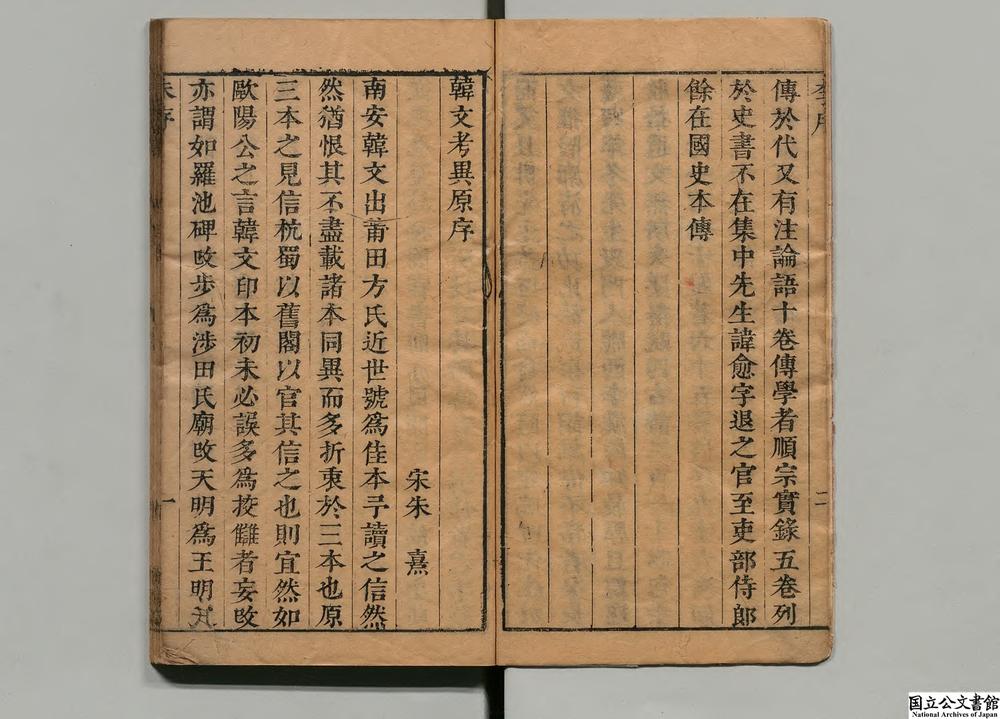 李序
傳於代又有注論語十卷傳學者順宗實錄五卷列
於史書不在集中先生諱愈字退之官至吏部侍郎
餘在國史本傳
二
韓文考異原序
宋朱　熹
南安韓文出莆田方氏近世號爲佳本予讀之信然
然猶恨其不盡載諸本同異而多折衷於三本也原
三本之見信杭蜀以舊閣以官其信之也則宜然如
歐陽公之言韓文印本初未必誤多爲挍讎者妄改
亦謂如羅池碑改步爲涉田氏廟改天明爲王明
朱序
一
国立公文書館
National Archives of Japan